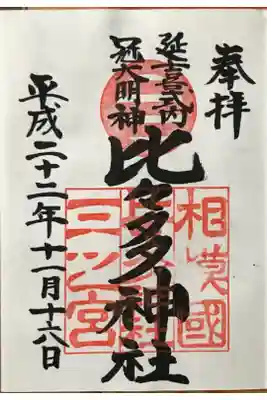 奉拝
延喜式内
冠大明神
比々多神社
平成二十二年十一月十六日
相模國
三之宮